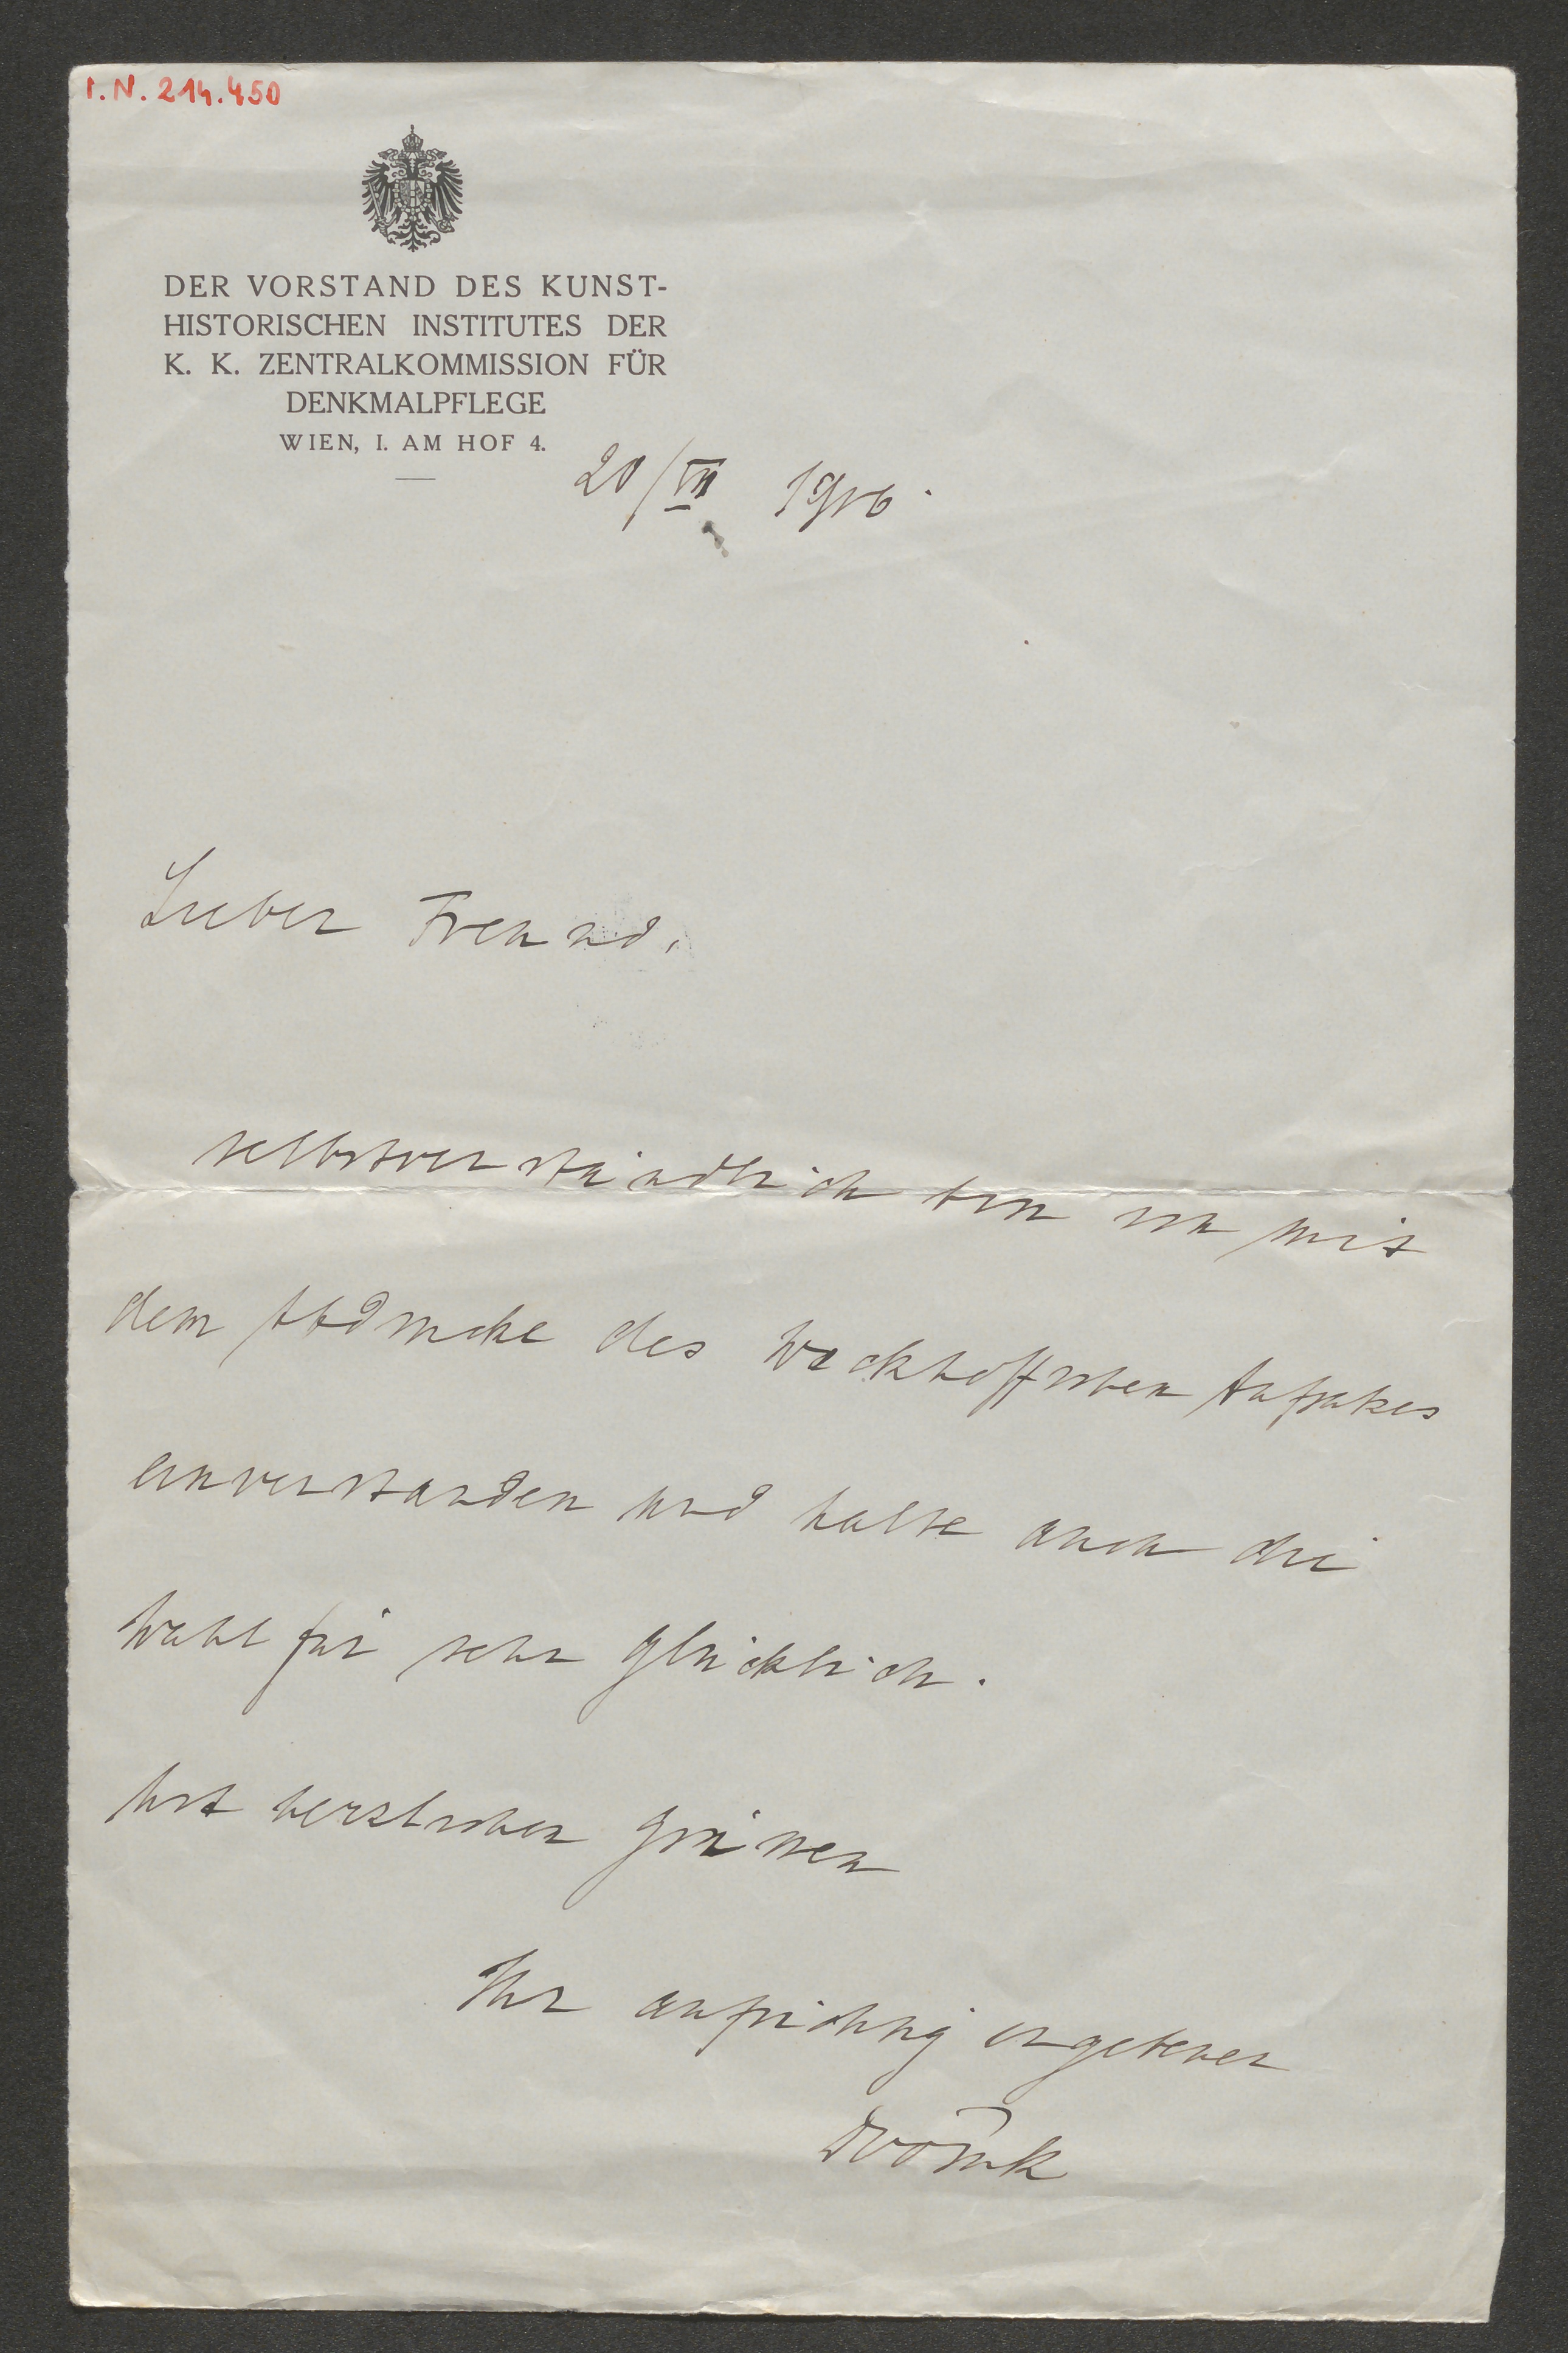 I.N. 214.450
DER VORSTAND DES KUNST-
HISTORISCHEN INSTITUTES DER
K. K. ZENTRALKOMMISSION FÜR
DENKMALPFLEGE
WIEN, I. AM HOF 4.
20/VII 1916.
Lieber Freund,
selbstverständlich bin ich mit
dem Abdrucke des Wickhoffschen Aufsatzes
einverstanden und halte auch die
Wahl für sehr glücklich.
Mit herzlichen Grüssen
Ihr aufrichtig ergebener
Dvořák